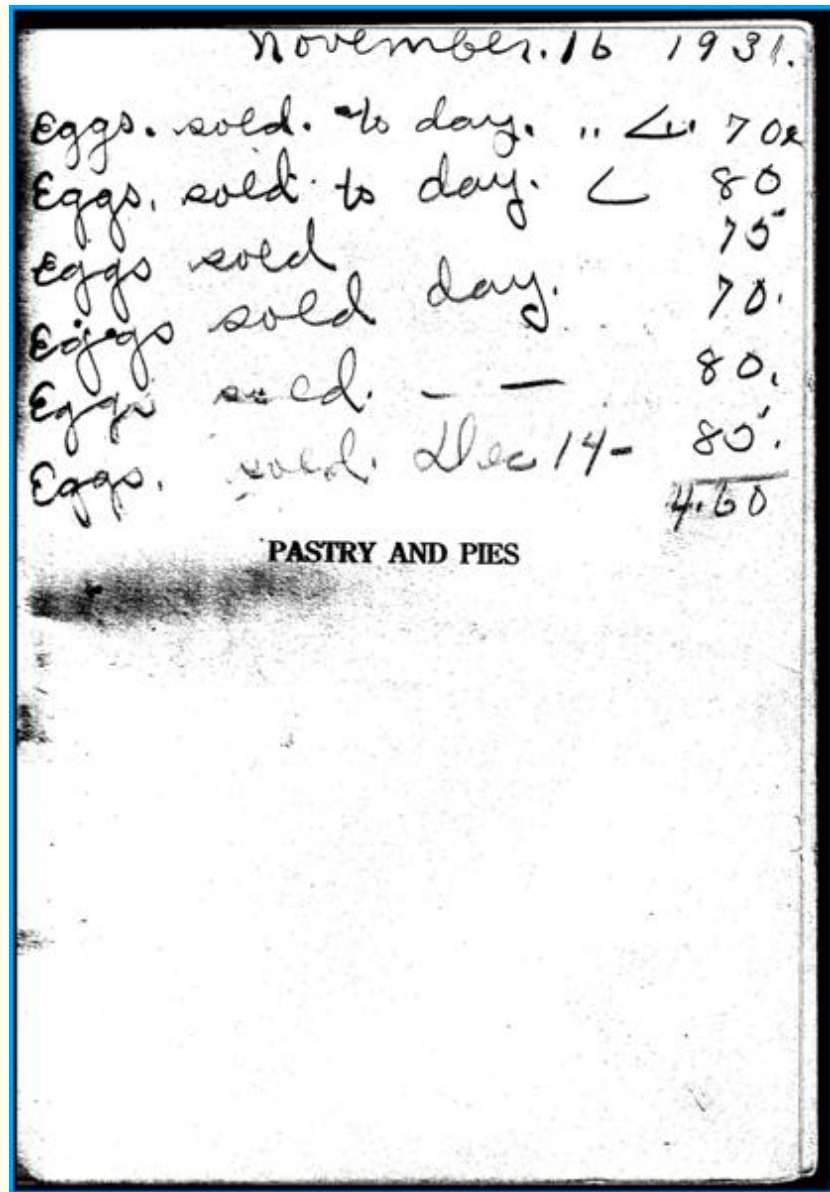 November. 16 1931.
Eggs. sold. to day. " L" 70c
Eggs. sold to day. L 80
Eggs sold 75
Eggs sold day. 70.
Eggs sold. - - 80.
Eggs. sold. Dec 14- 85.
4.60
PASTRY AND PIES